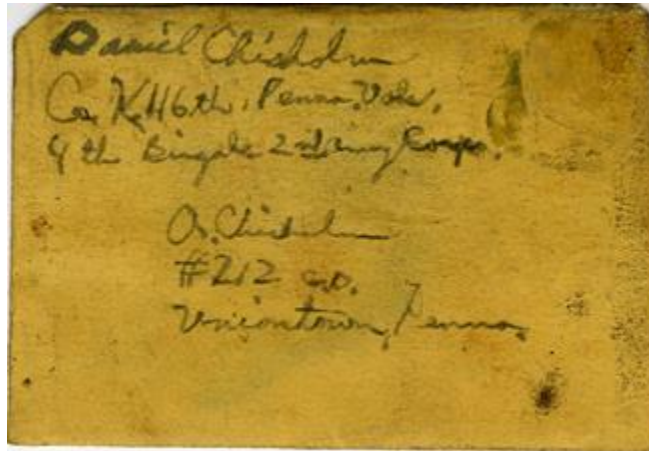 Daniel Chisholm
Co. K, 116th, Penna. Vols.
4th Brigade 2nd Army Corps.
A. Chisholm
#212
Uniontown, Penna,